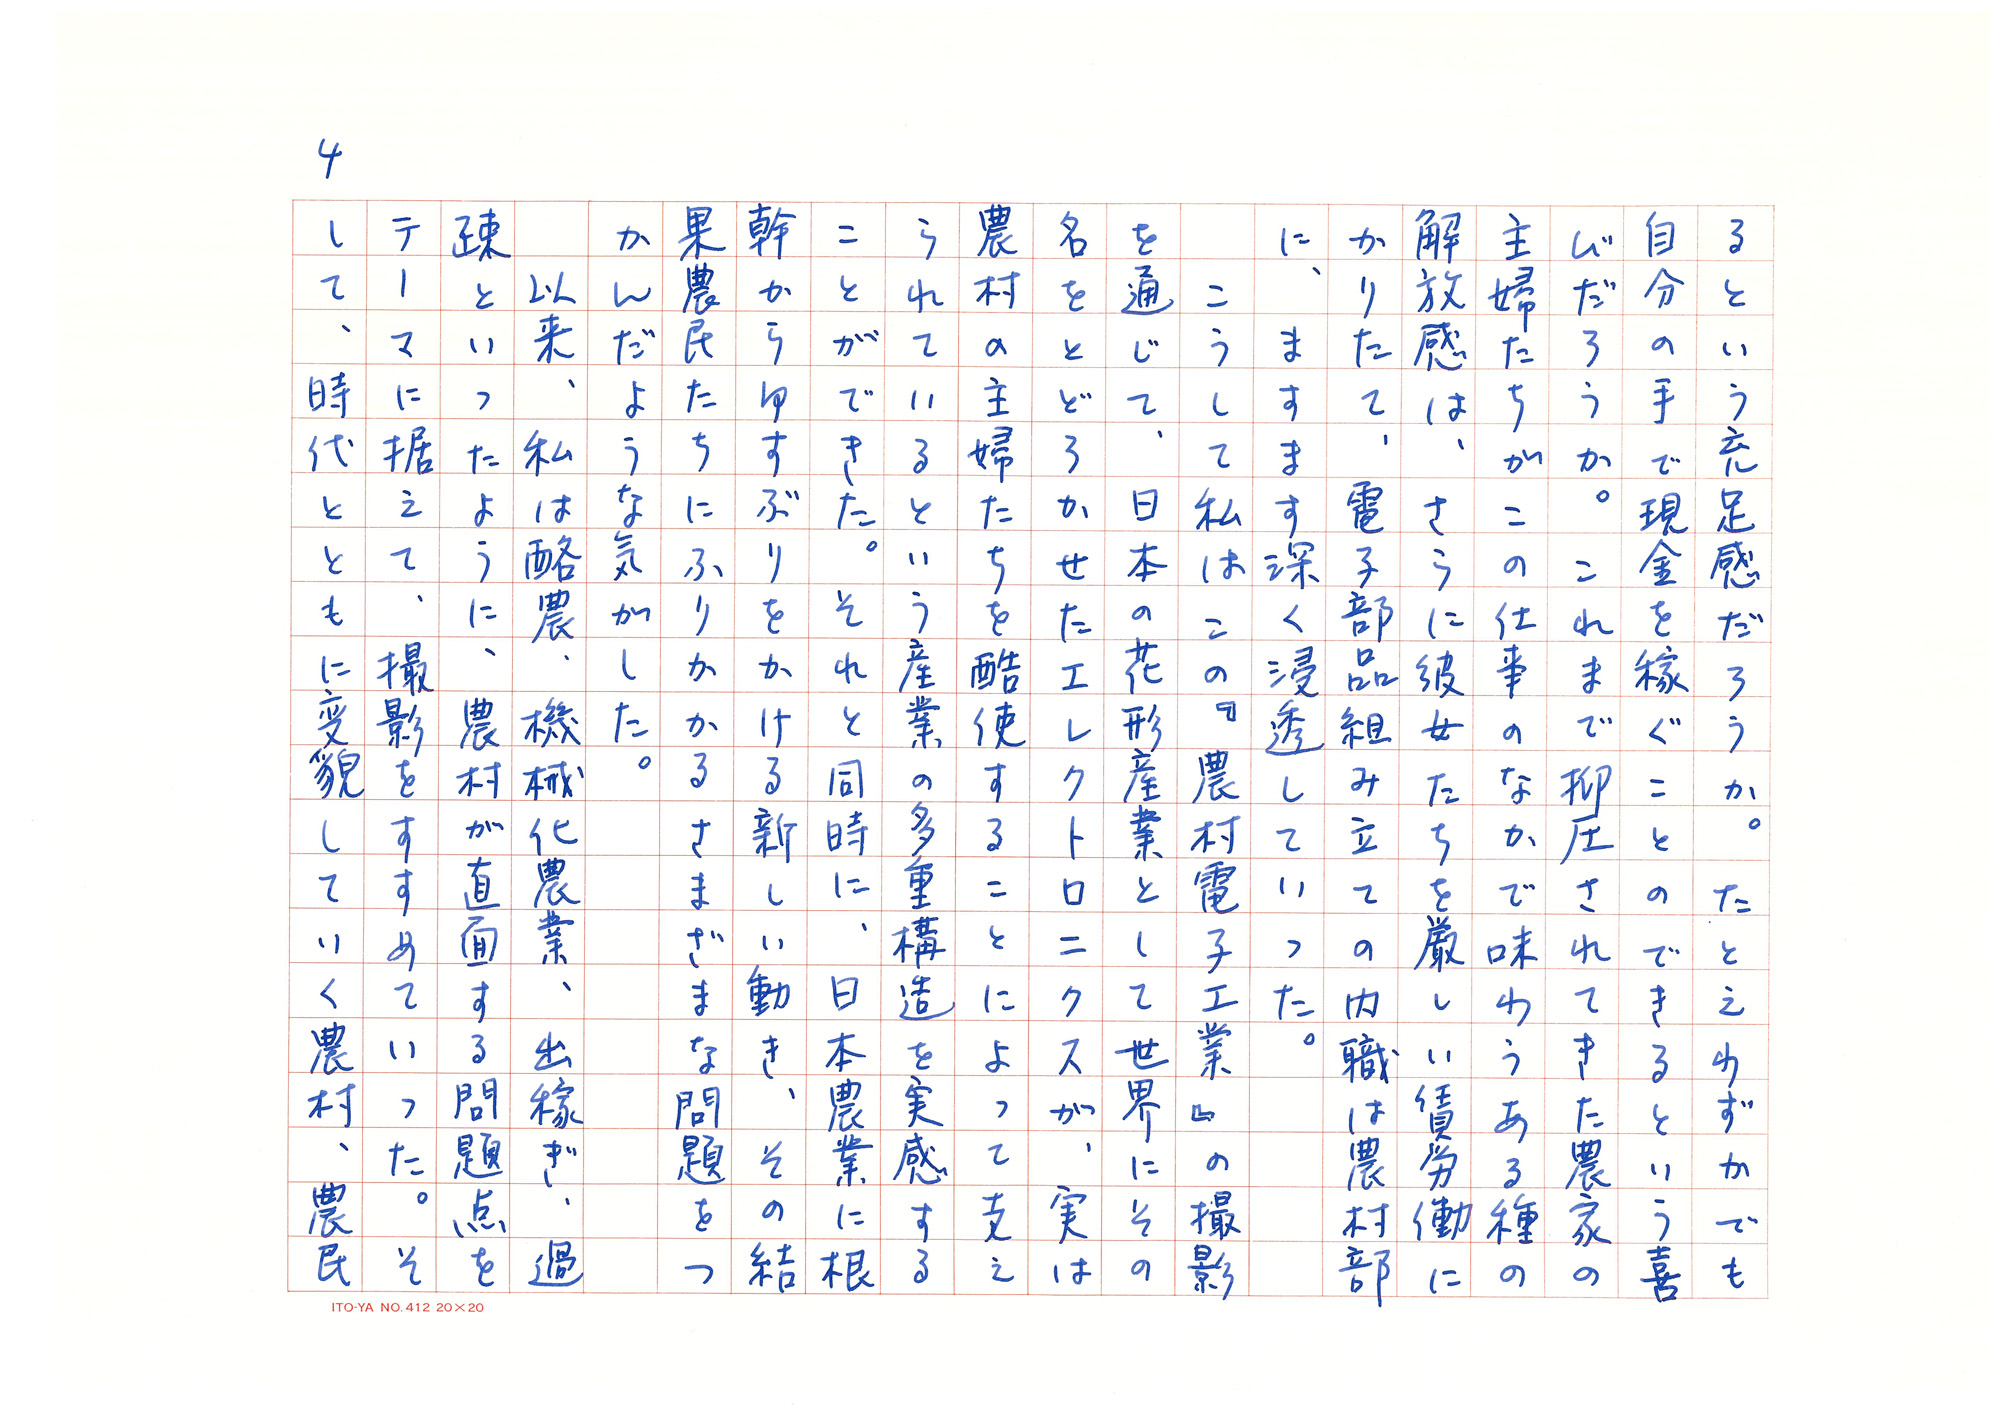 4
るという充足感だろうか。たとえわずかでも
自分の手で現金を稼ぐことのできるという喜
びだろうか。これまで抑圧されてきた農家の
主婦たちがこの仕事のなかで味わうある種の
解放感は、さらに彼女たちを厳しい賃労働に
かりたて、電子部品組み立ての内職は農村部
に、ますます深く浸透していった。
こうして私はこの『農村電子工業』の撮影
を通じて、日本の花形産業として世界にその
名をとどろかせたエレクトロニクスが、実は
農村の主婦たちを酷使することによって支え
られているという産業の多重構造を実感する
ことができた。それと同時に、日本農業に根
幹からゆすぶりをかける新しい動き、その結
果農民たちにふりかかるさまざまな問題をつ
かんだような気がした。
以来、私は酪農、機械化農業、出稼ぎ、過
疎といったように、農村が直面する問題点を
テーマに据えて、撮影をすすめていった。そ
して、時代とともに変貌していく農村、農民
ITO-YA NO.412 20×20